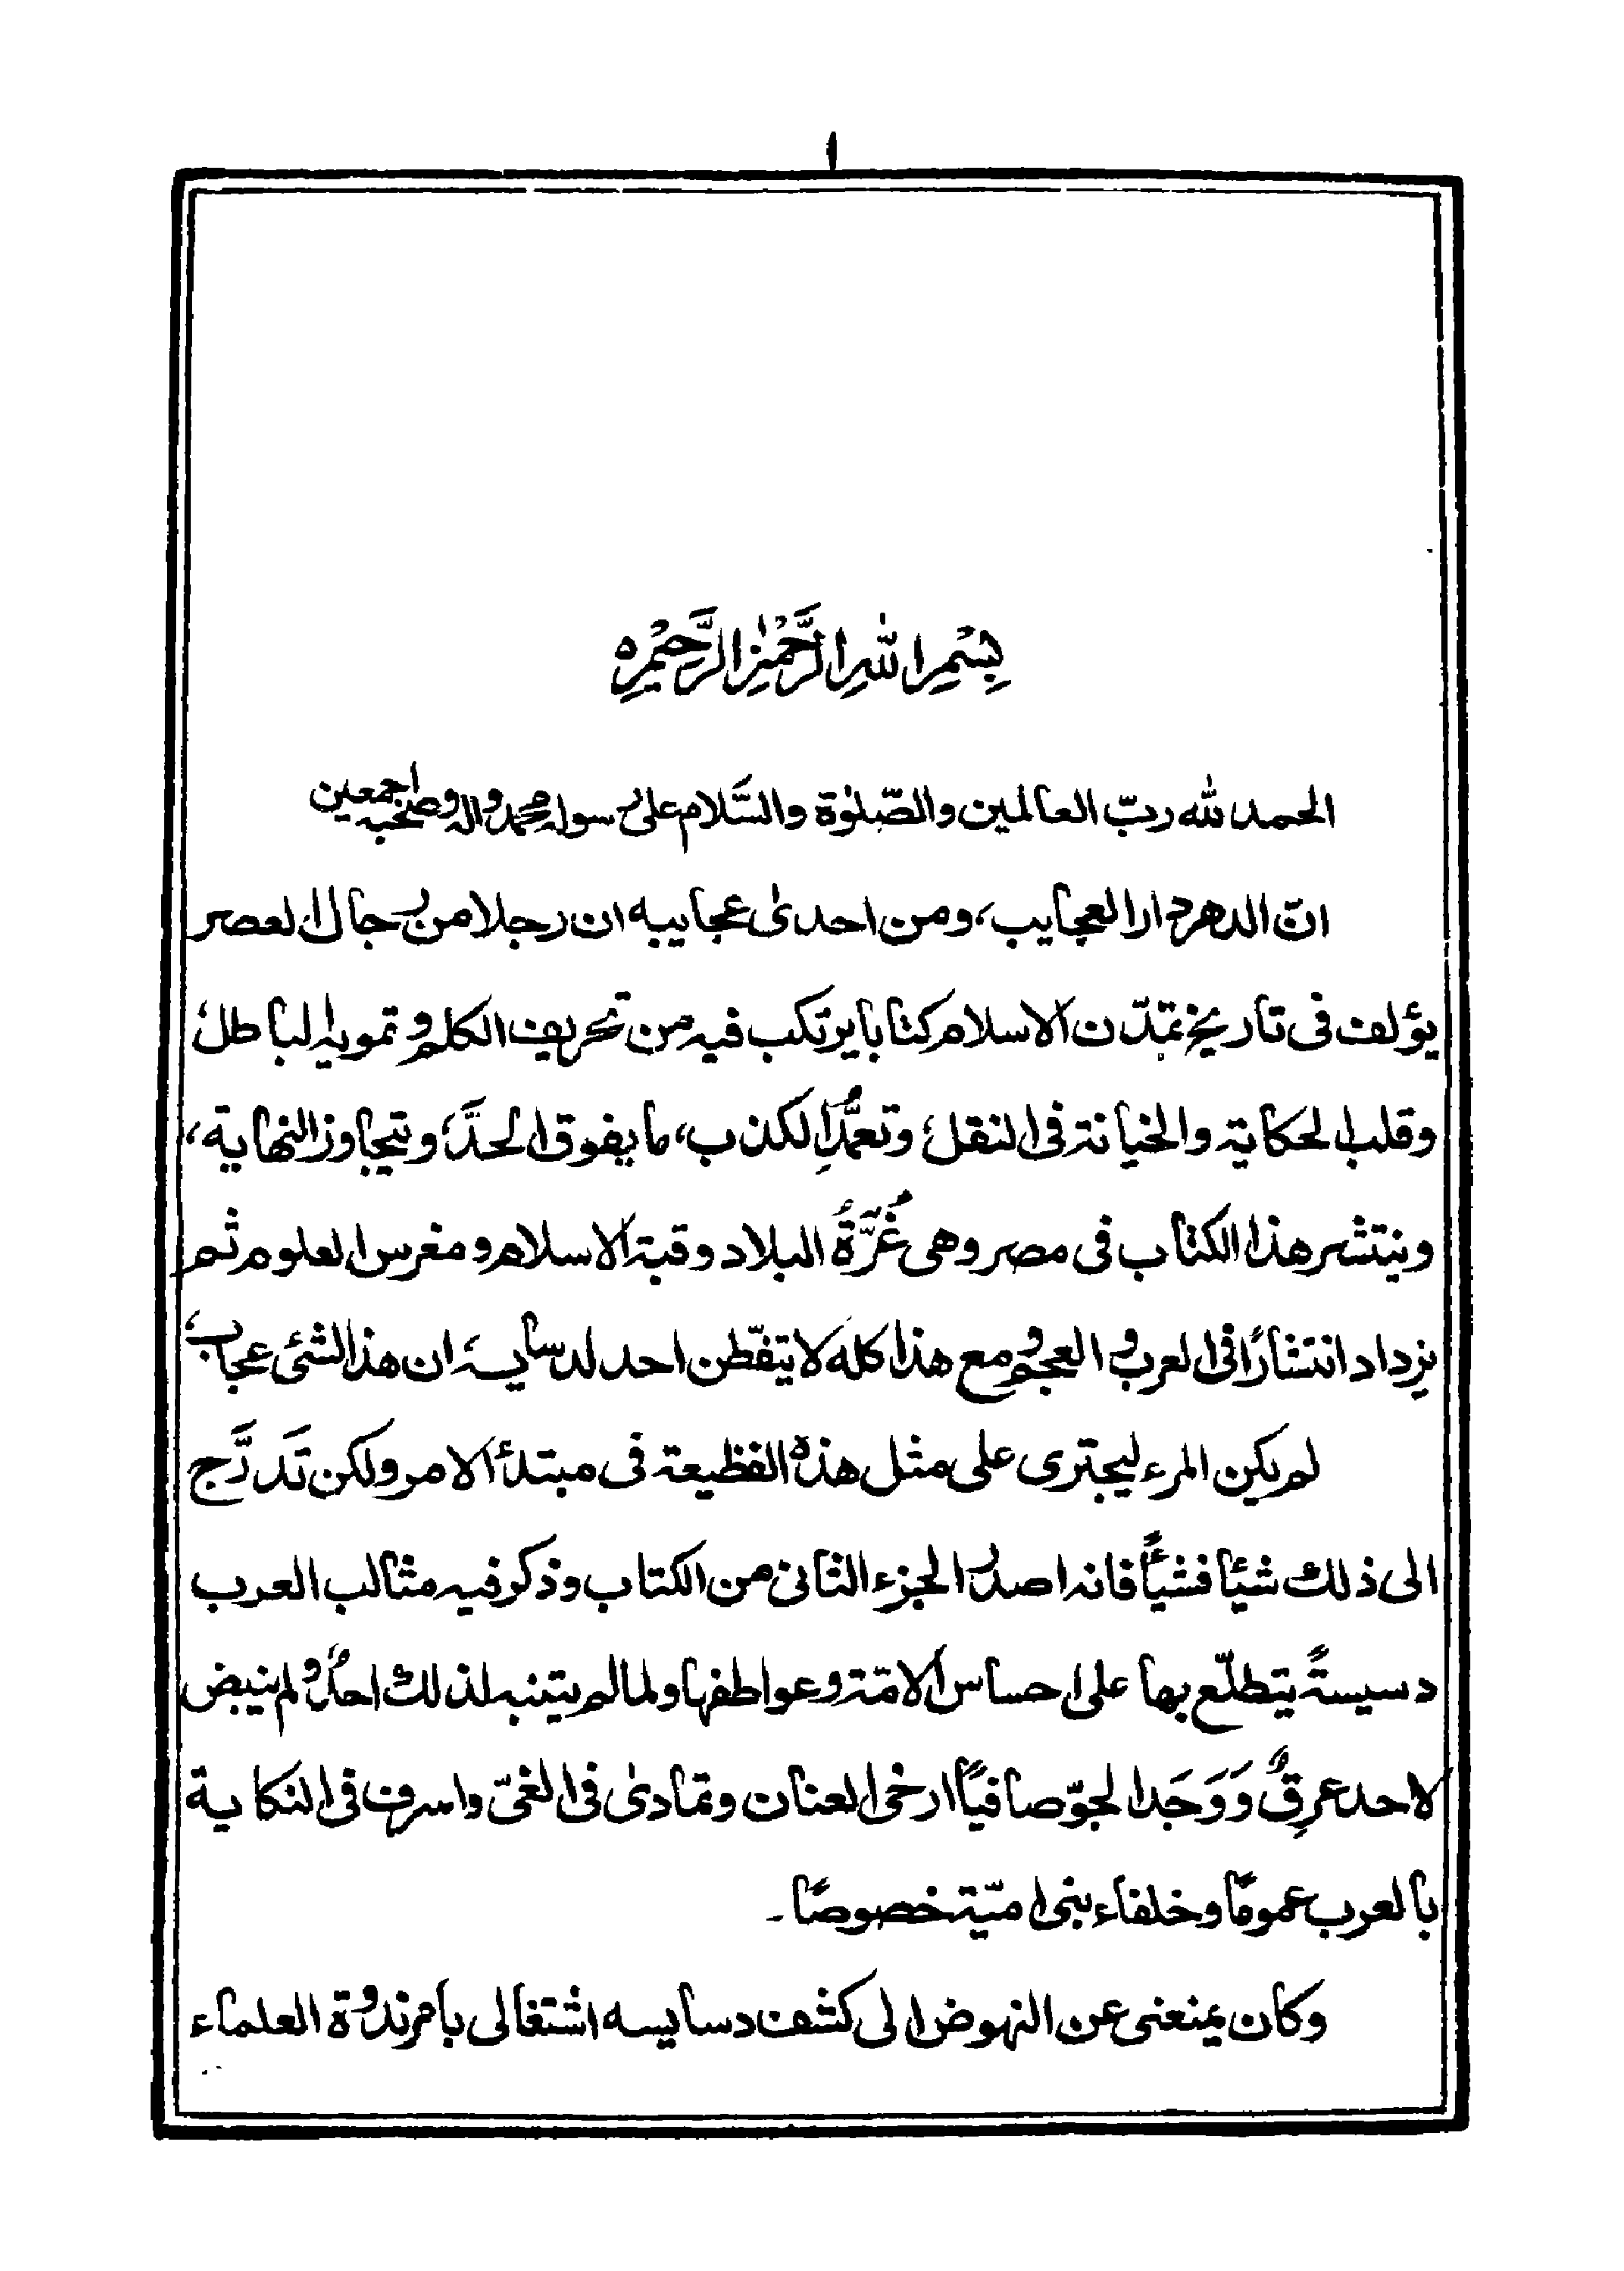 ١
بِسْمِ اللهِ الرَّحْمٰنِ الرَّحِيْمِ
الحمد لله ربّ العالمين والصّلوٰة والسَّلام على رسوله محمد واله وصحبه اجمعين
انّ الدهر دار العجايب، ومن احدىٰ عجايبه ان رجلا من رجال العصر
يؤلف فى تاريخ تمدّن الاسلام كتابا يرتكب فيه من تحريف الكلم و تمويه الباطل،
وقلب الحكاية والخيانة فى النقل، وتعمُّدِ الكذب، ما يفوق الحدَّ، و يتجاوز النهاية،
وينتشر هذا الكتاب فى مصر وهى غُرَّةُ البلاد وقبة الاسلام و مغرس العلوم ثم
يزداد انتشارًا فى العرب و العجم و مع هذا كله لا يتفّطن احد لدسايسه، ان هذا لشئ عجاب،
لم يكن المرء ليجترى على مثل هذه الفظيعة فى مبتدأ الامر ولكن تَدَرَّج
الى ذلك شيًا فشيًأ فانه اصدر الجزء الثانى من الكتاب وذكر فيه مثالب العرب
دسيسةً يتطلّع بها على احساس الامة وعواطفها ولما لم يتنبه لذلك احدٌ و لم ينبض
لاحد عرِقٌ وَوَجَد الجوّ صافيًا ارخى العنان وتمادىٰ فى الغىّ واسرف فى النكاية
بالعرب عمومًا وخلفاء بنى اميّة خصوصًا۔
وكان يمنعنى عن النهوض الى كشف دسايسه اشتغالى بامر ندوة العلماء